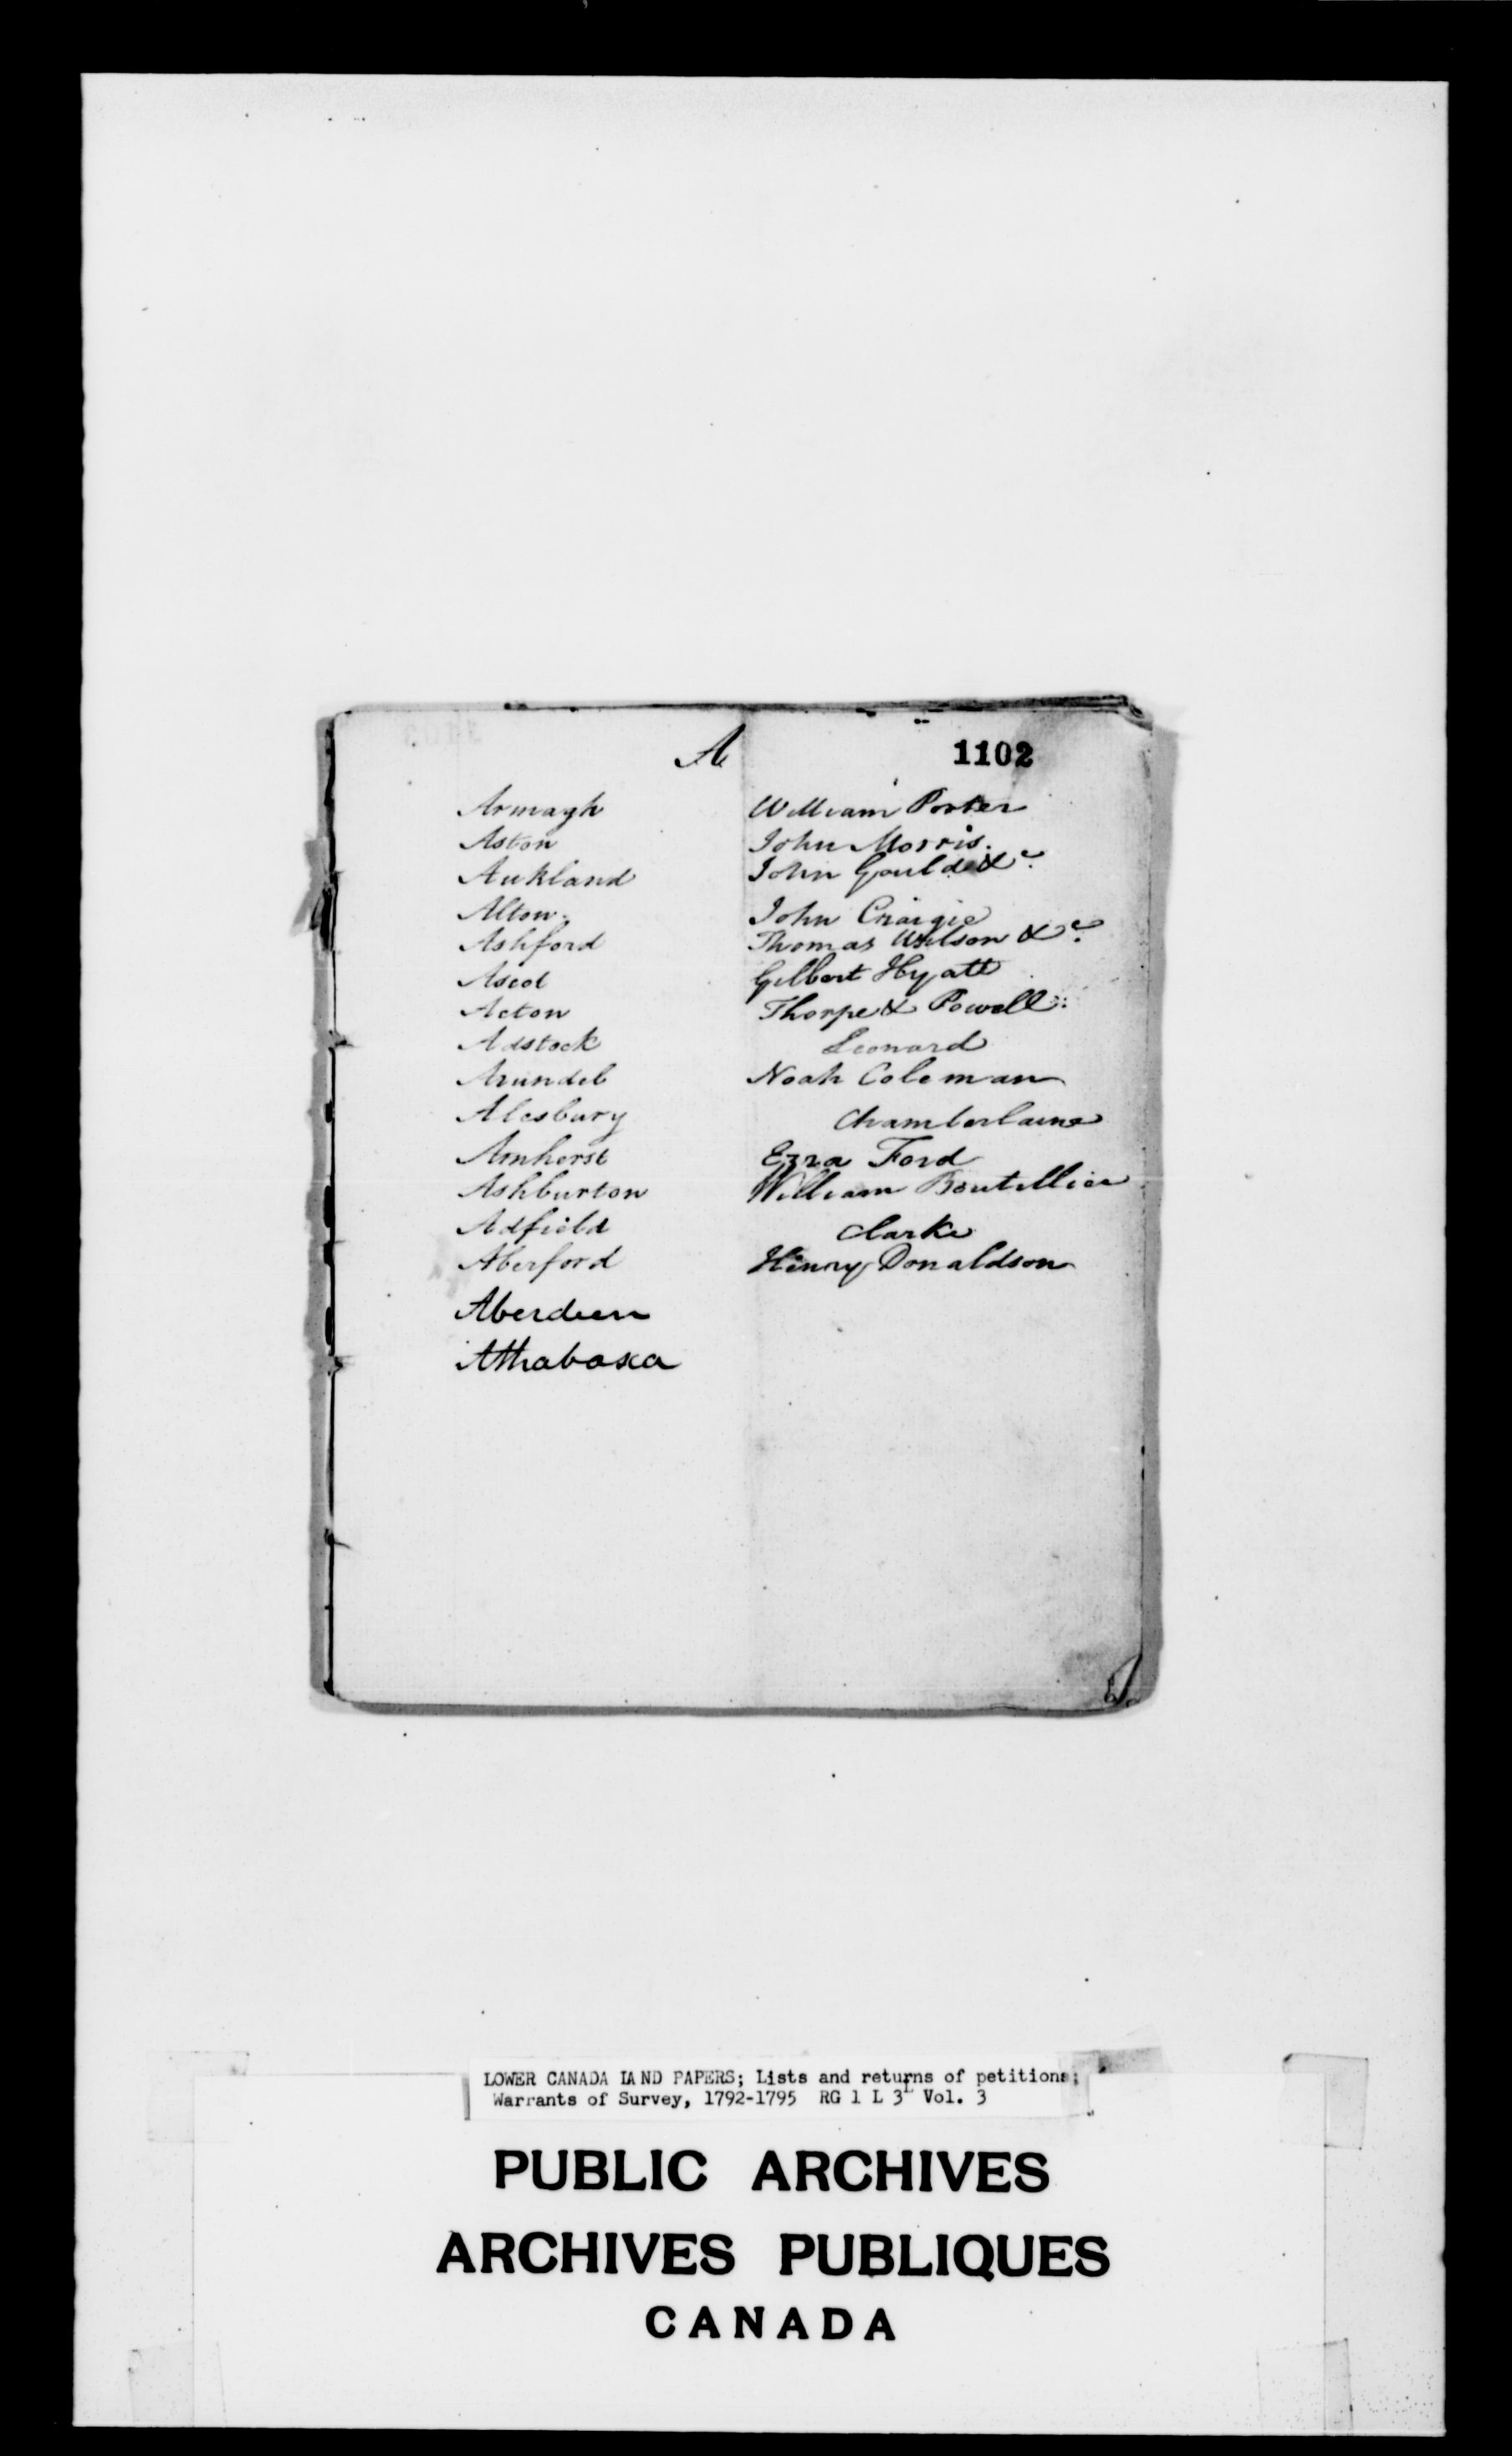 A 1102
Armagh William Porter
Aston John Morris.
Aukland John Gould &c.
Alton. John Craigie
Ashford Thomas Wilson &c.
Ascot Gilbert Hyatt
Acton Thorpe & Powell
Adstock Leonard
Arundel Noah Coleman
Alesbury Chamberlaine
Amherst Ezra Ford
Ashburton William Boutillier
Adfield Clarke
Aberford Henry Donaldson
Aberdeen
Athabaxa
LOWER CANADA LAND PAPERS; Lists and returns of petitions;
Warrants of Survey, 1792-1795 RG 1 L 3L Vol. 3
PUBLIC ARCHIVES
ARCHIVES PUBLIQUES
CANADA